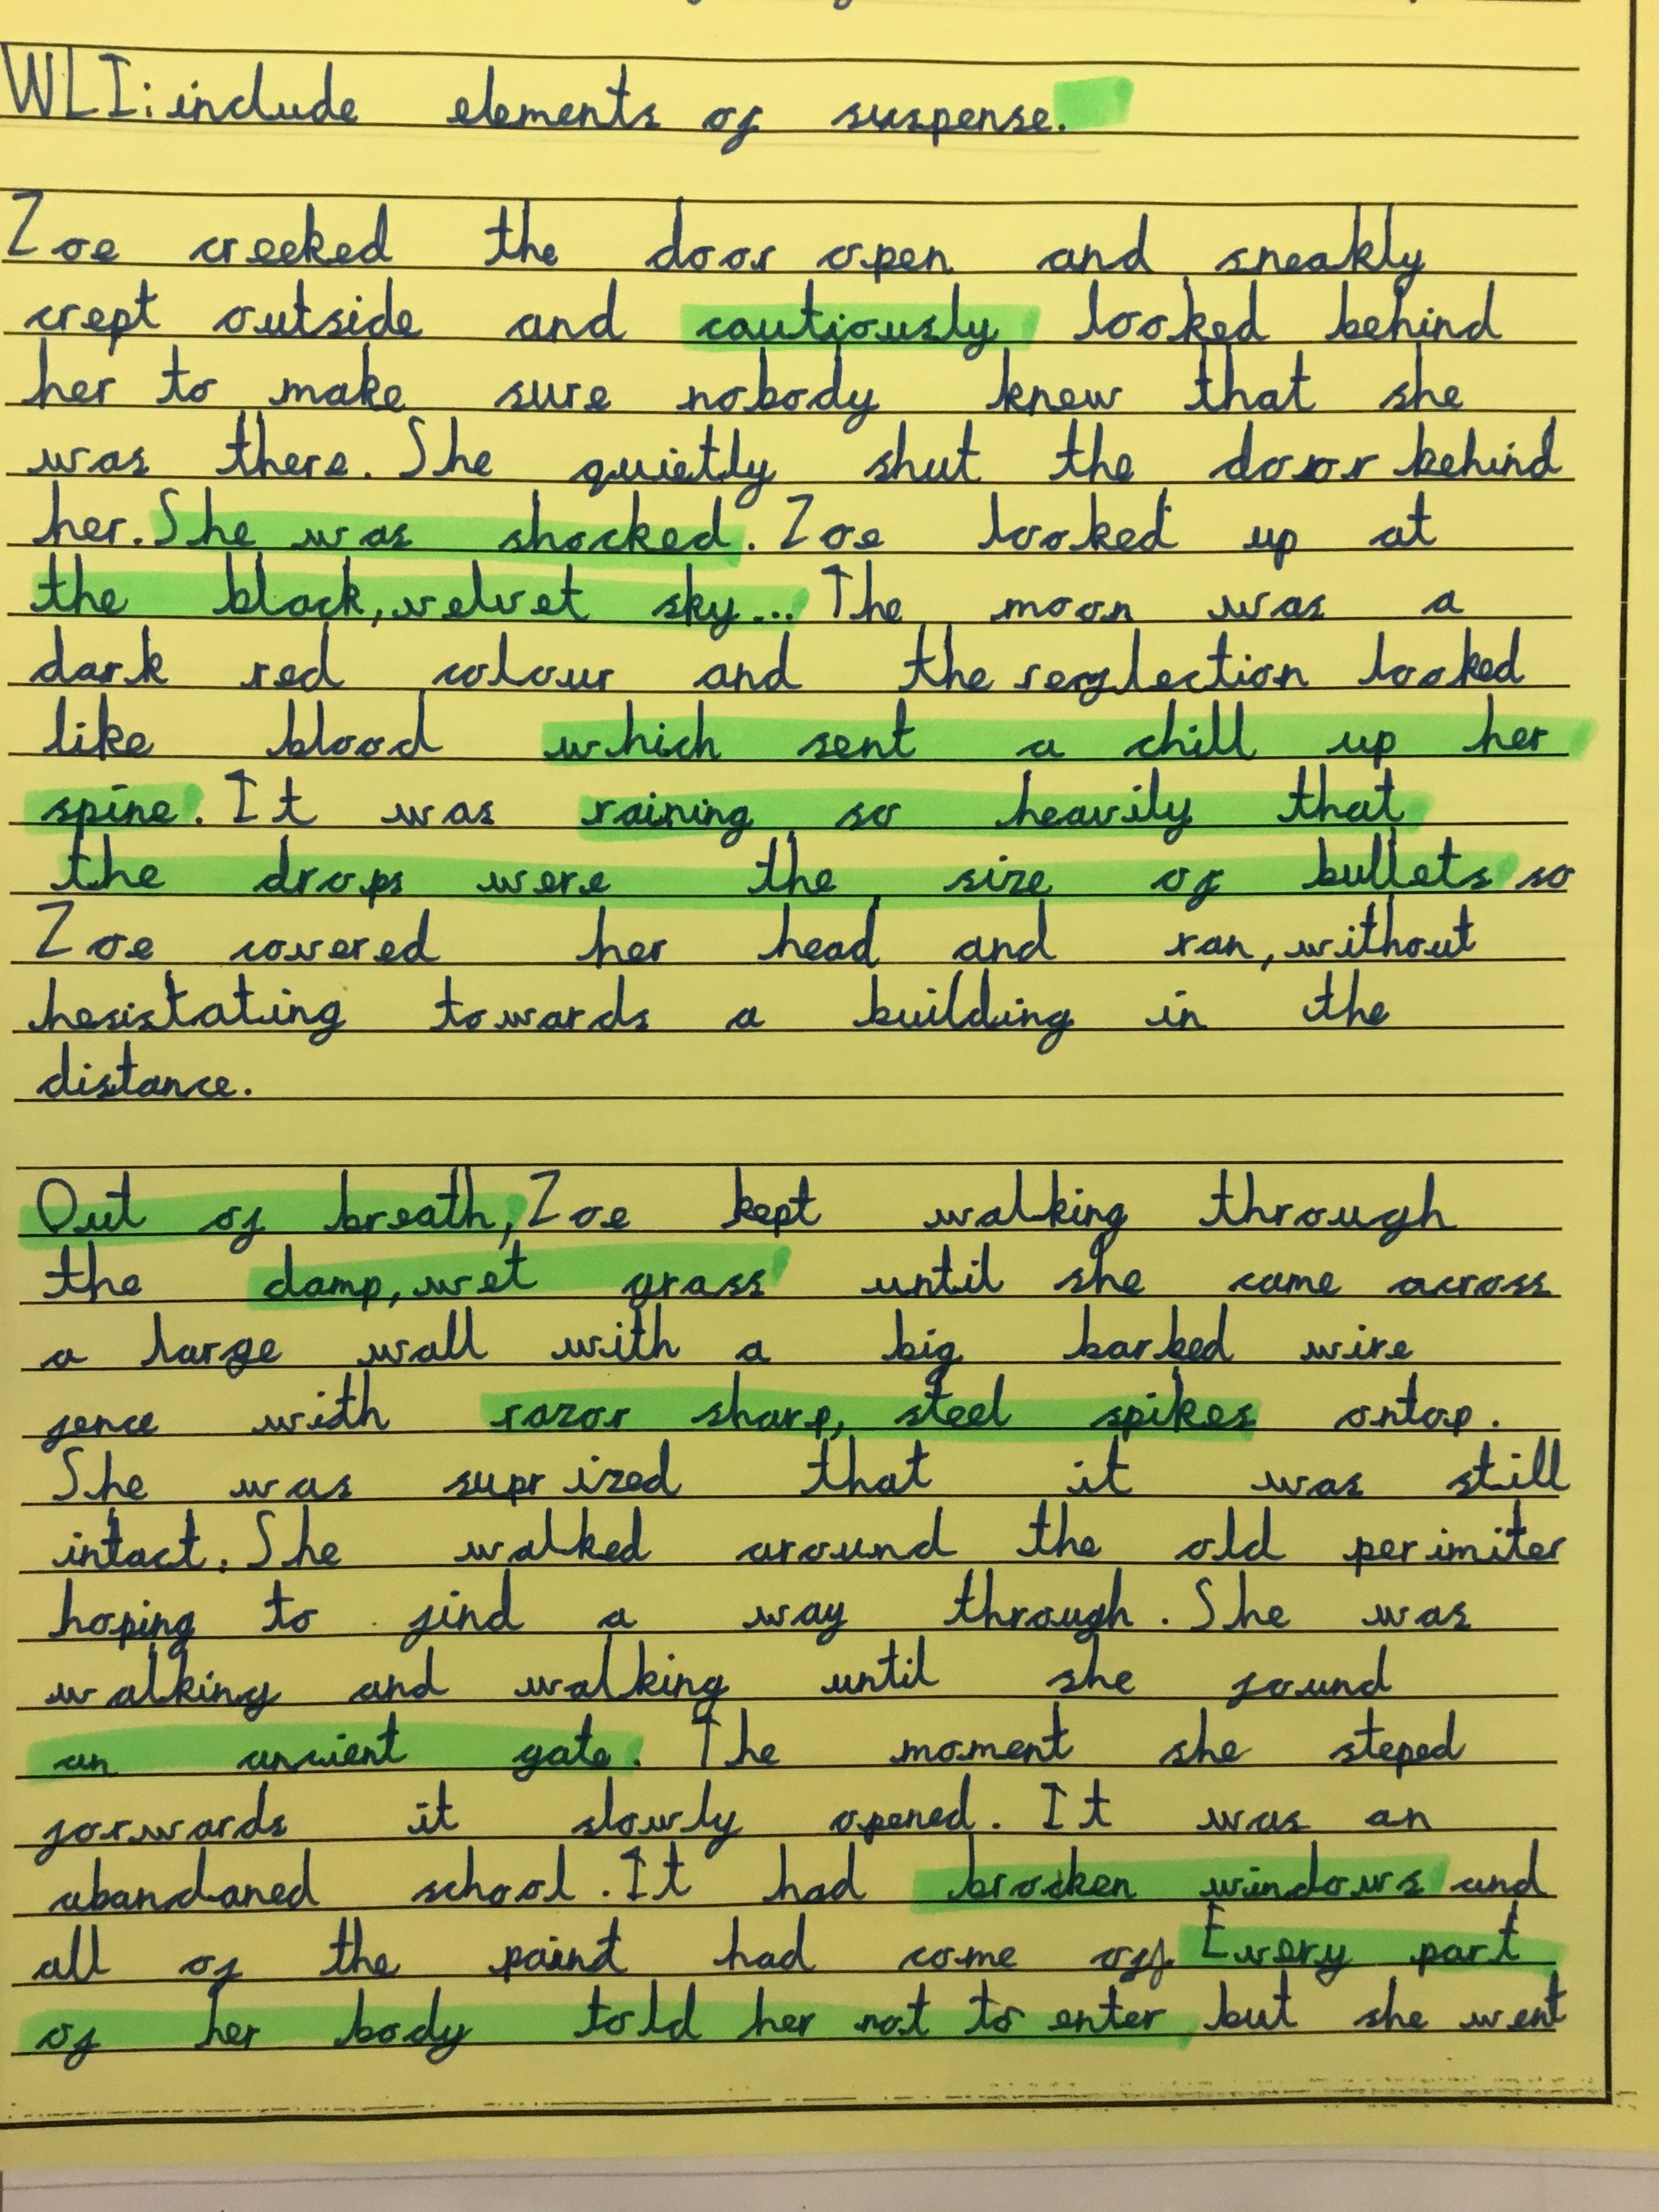 WLI: include elements of suspense.
Zoe creeked the door open and sneakly
crept outside and cautiously looked behind
her to make sure nobody knew that she
was there. She quietly shut the door behind
her. She was shocked. Zoe looked up at
the black, velvet sky... The moon was a
dark red colour and the reflection looked
like blood which sent a chill up her
spine. It was raining so heavily that
the drops were the size of bullets so
Zoe covered her head and ran, without
hesistating towards a building in the
distance.
Out of breath, Zoe kept walking through
the damp, wet grass until she came across
a large wall with a big barbed wire
fence with razor sharp, steel spikes ontop.
She was suprized that it was still
intact. She walked around the old perimiter
hoping to find a way through. She was
walking and walking until she found
an ancient gate. The moment she steped
forwards it slowly opened. It was an
abandaned school. It had brocken windows and
all of the paint had come off. Every part
of her body told her not to enter but she went